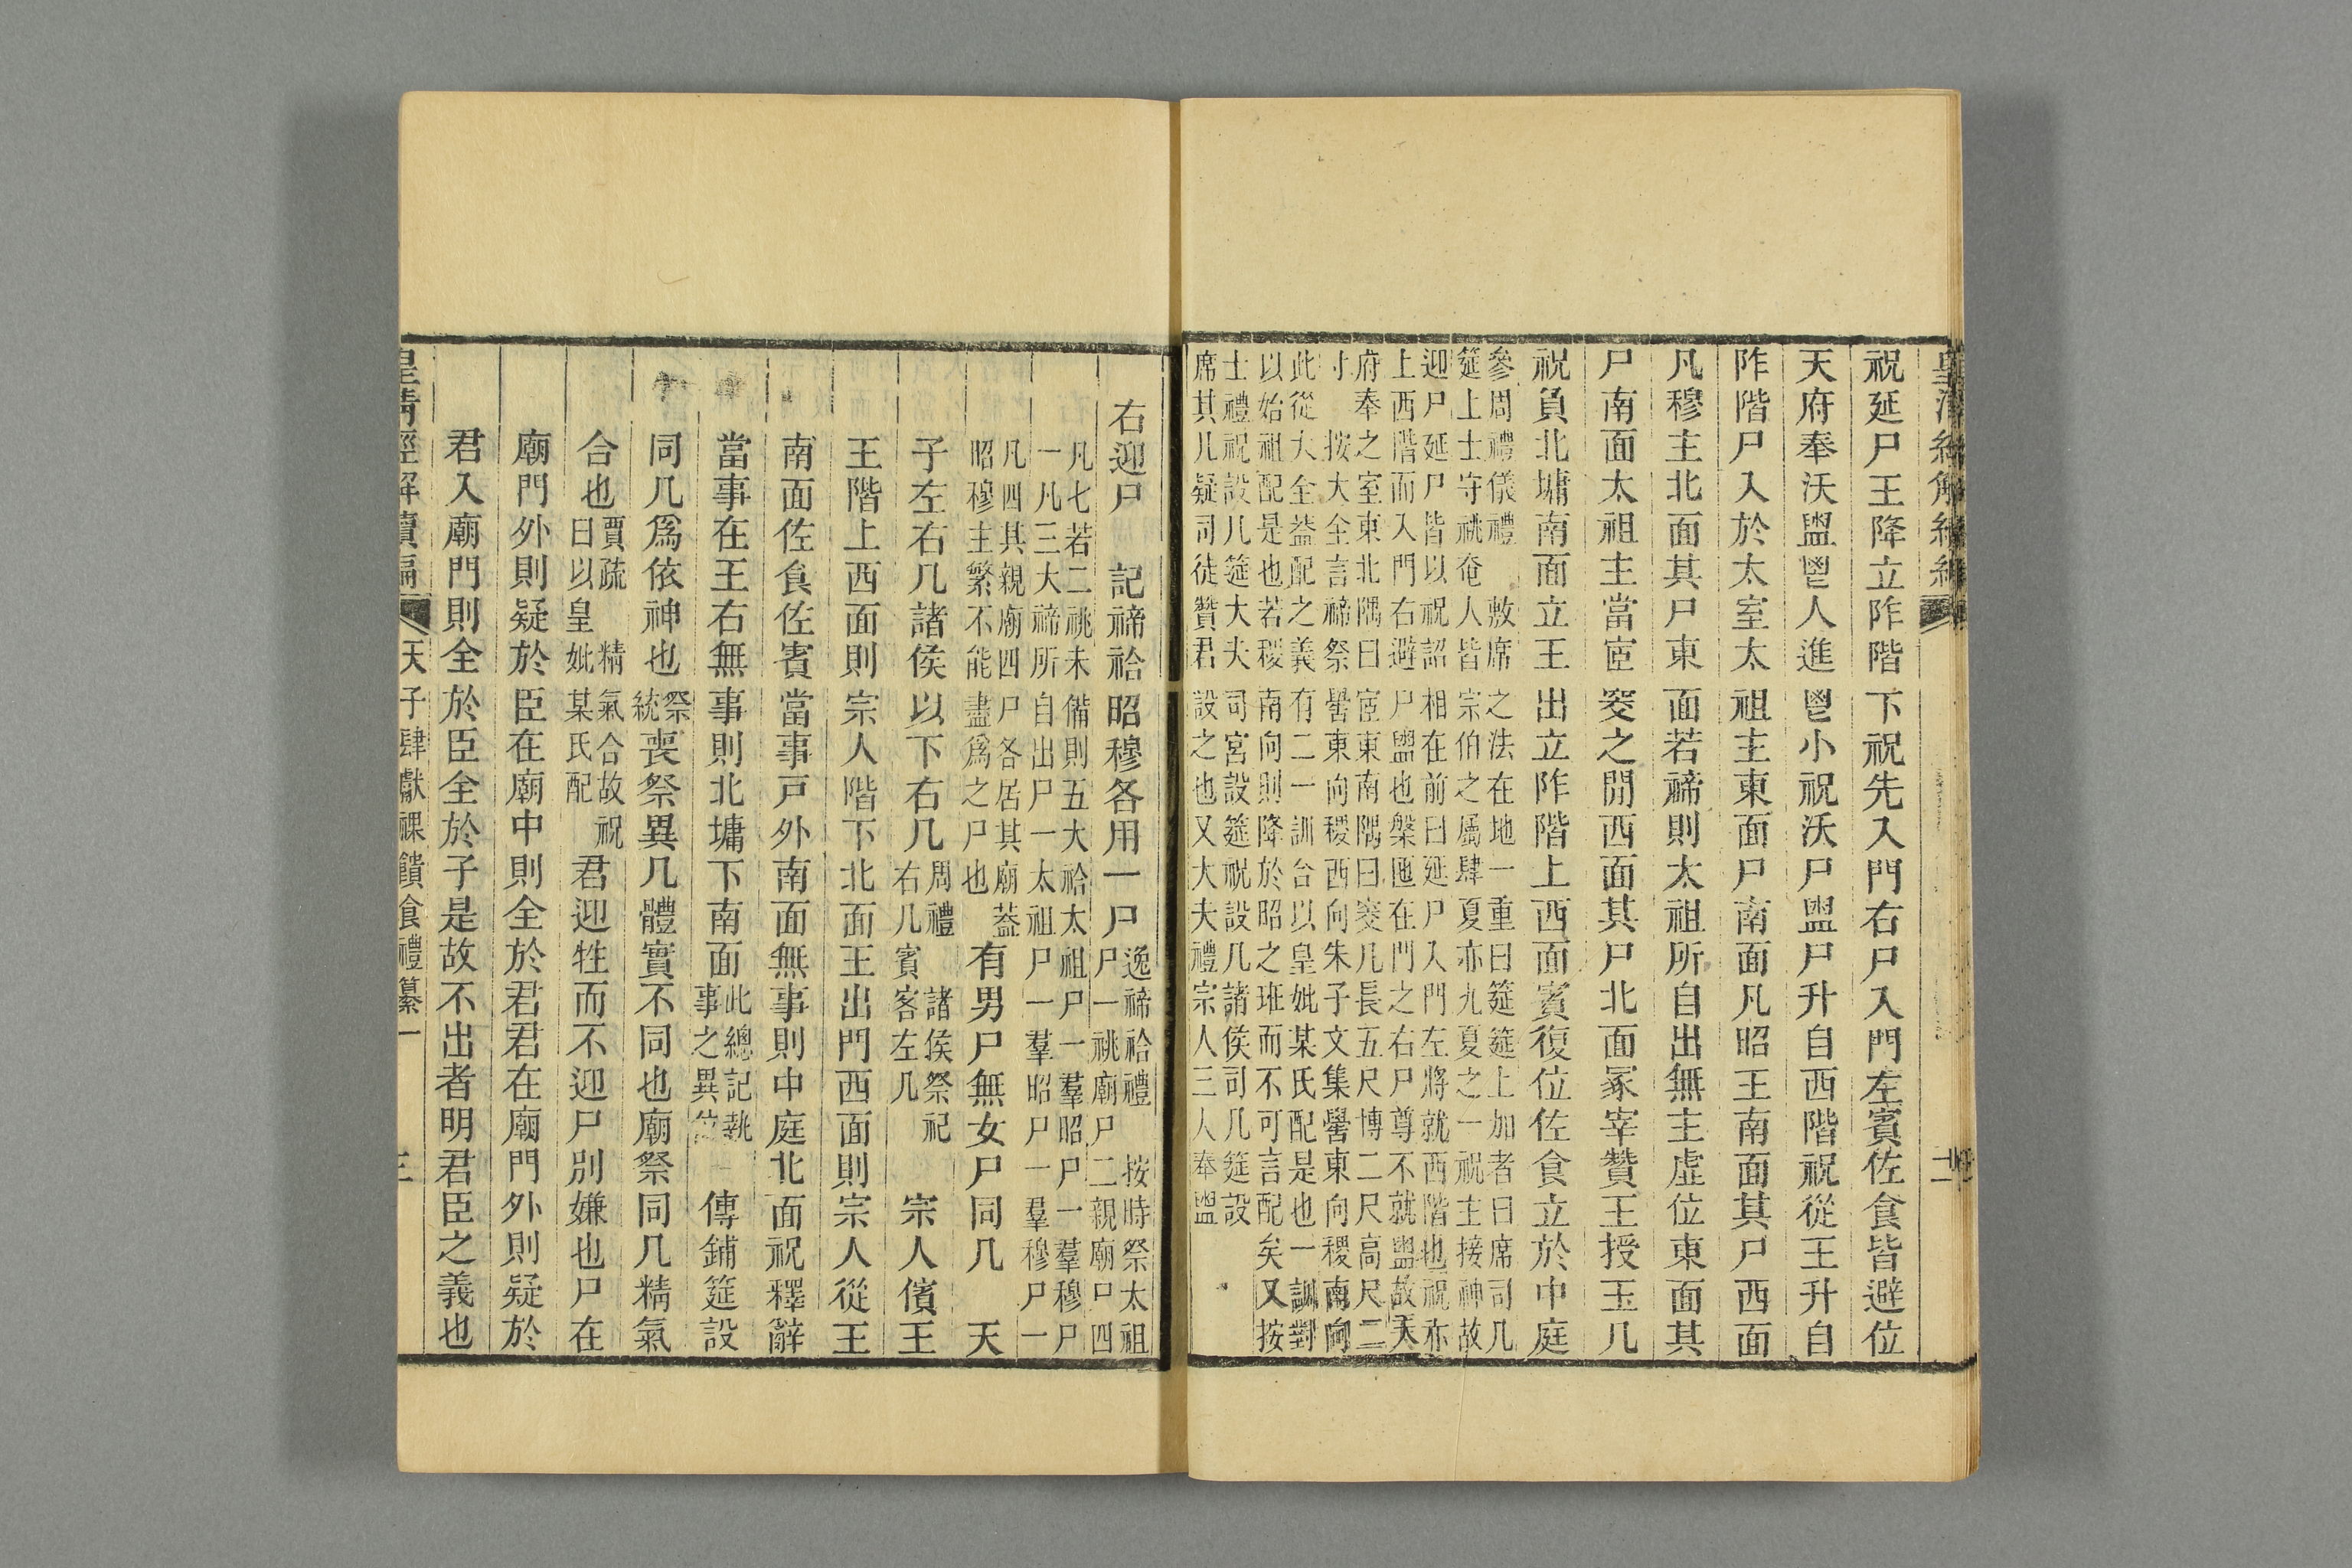 祝延尸王降立阼階下祝先入門右尸入門左賓佐食皆避位
天府奉沃盥鬯人進鬯小祝沃尸盥尸升自西階祝從王升自
阼階尸入於太室太祖主東面尸南面凡昭王南面其尸西面
凡穆主北面其尸東面若禘則太祖所自出無主虛位東面其
尸南面太祖主當宧窔之閒西面其尸北面冢宰贊王授玉几
祝負北墉南面立王出立阼階上西面賓復位佐食立於中庭
參周禮儀禮　敷席之法在地一重曰筵筵上加者曰席司几
筵上士守祧奄人皆宗伯之屬肆夏亦九夏之一祝主接神故
迎尸延尸皆以祝詔相在前曰延尸入門左將就西階也祝亦
上西階而入門右避尸盥也槃匜在門之右尸尊不就盥故天
府奉之室東北隅曰宧東南隅曰窔几長五尺博二尺高尺二
寸　按大全言禘祭嚳東向稷西向朱子文集嚳東向稷南向
此從大全葢配之義有二一訓合以皇妣某氏配是也一訓對
以始祖配是也若稷南向則降於昭之班而不可言配矣又按
士禮祝設几筵大夫司宮設筵祝設几諸侯司几筵設
席其几疑司徒贊君設之也又大夫禮宗人三人奉盥
右迎尸　記禘祫昭穆各用一尸逸禘祫禮　按時祭太祖
尸一祧廟尸二親廟尸四
凡七若二祧未備則五大祫太祖尸一羣昭尸一羣穆尸
一凡三大禘所自出尸一太祖尸一羣昭尸一羣穆尸一
凡四其親廟四尸各居其廟葢
昭穆主繁不能盡爲之尸也有男尸無女尸同几　天
子左右几諸侯以下右几周禮　諸侯祭祀
右几賓客左几　宗人儐王
王階上西面則宗人階下北面王出門西面則宗人從王
南面佐食佐賓當事戸外南面無事則中庭北面祝釋辭
當事在王右無事則北墉下南面此總記執
事之異位　傳鋪筵設
同几爲依神也祭
統喪祭異几體實不同也廟祭同几精氣
合也賈疏　精氣合故祝
曰以皇妣某氏配　君迎牲而不迎尸別嫌也尸在
廟門外則疑於臣在廟中則全於君君在廟門外則疑於
君入廟門則全於臣全於子是故不出者明君臣之義也
皇清經解續編　天子肆獻祼饋食禮纂一　三